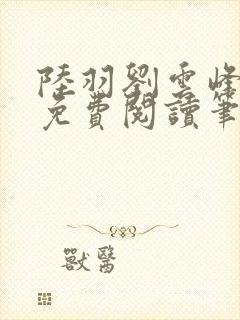 陸羽劉雲峰
免費閱讀筆
獸醫